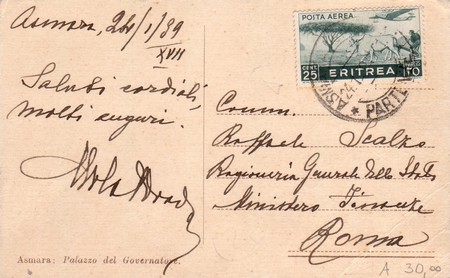 Asmara, 24/1/39
XVII
Saluti cordiali,
molti auguri.
Asmara: Palazzo del Governatore.
POSTA AEREA
CENT. 25
ERITREA
ASMARA
24.1
PARTENZE
Comm.
Raffaele Scalzo
Ragioneria Generale dello Stato
Ministero Finanze
Roma
A 30,00